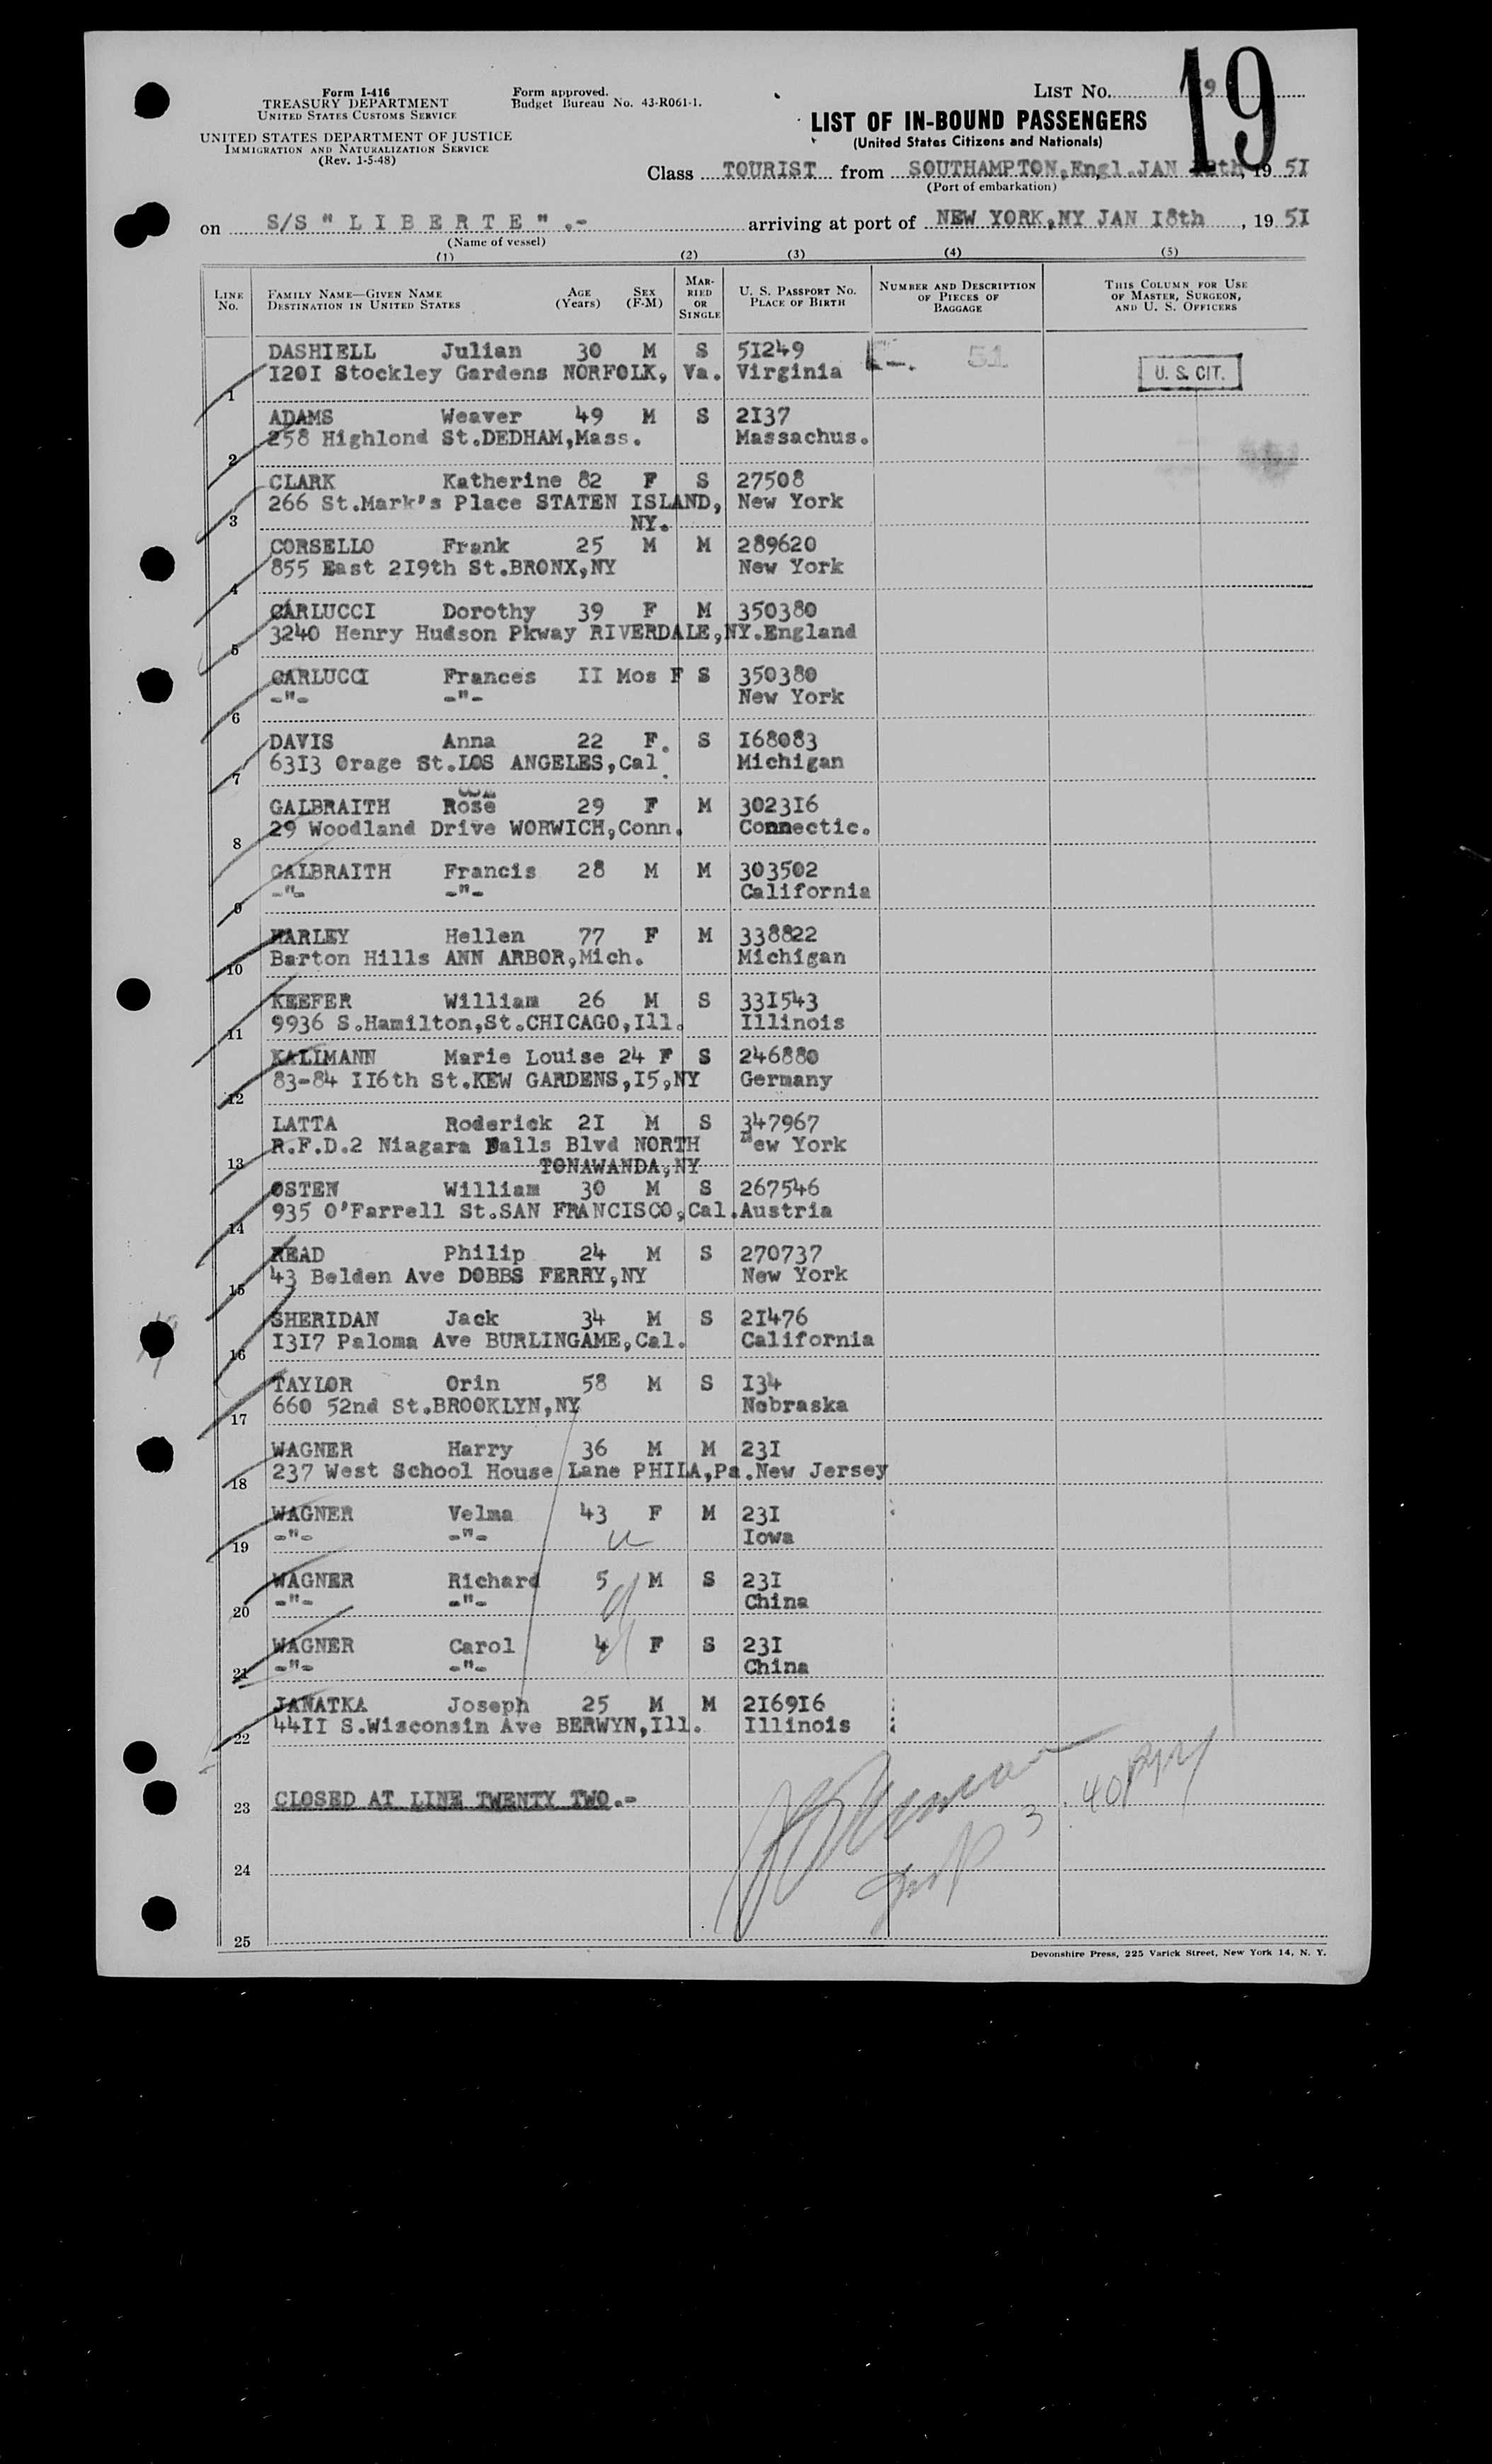 Form I-416
TREASURY DEPARTMENT
UNITED STATES CUSTOMS SERVICE
UNITED STATES DEPARTMENT OF JUSTICE
IMMIGRATION AND NATURALIZATION SERVICE
(Rev. 1-5-48)
Form approved.
Budget Bureau No. 43-R061-1.
LIST NO. 19
19
LIST OF IN-BOUND PASSENGERS
(United States Citizens and Nationals)
Class TOURIST from SOUTHAMPTON, Engl. JAN 19 51
(Port of embarkation)
on S/S " L I B E R T E " .- arriving at port of NEW YORK,NY JAN I8th , 19 5I
(Name of vessel)
(1) (2) (3) (4) (5)
LINE No. FAMILY NAME—GIVEN NAME DESTINATION IN UNITED STATES AGE (Years) SEX (F-M) MARRIED OR SINGLE U. S. PASSPORT NO. PLACE OF BIRTH NUMBER AND DESCRIPTION OF PIECES OF BAGGAGE THIS COLUMN FOR USE OF MASTER, SURGEON, AND U. S. OFFICERS
DASHIELL Julian 30 M S 5I249 51
1 I20I Stockley Gardens NORFOLK, Va. Virginia U. S. CIT.
ADAMS Weaver 49 M S 2I37
2 258 Highlond St.DEDHAM,Mass. Massachus.
CLARK Katherine 82 F S 27508
3 266 St.Mark's Place STATEN ISLAND, New York
NY.
CORSELLO Frank 25 M M 289620
4 855 East 2I9th St.BRONX,NY New York
CARLUCCI Dorothy 39 F M 350380
5 3240 Henry Hudson Pkway RIVERDALE,NY.England
CARLUCCI Frances II Mos F S 350380
6 -"- -"- New York
DAVIS Anna 22 F. S I68083
7 63I3 Orage St.LOS ANGELES,Cal. Michigan
GALBRAITH Rose 29 F M 3023I6
8 29 Woodland Drive WORWICH,Conn. Connectic.
GALBRAITH Francis 28 M M 303502
9 -"- -"- California
HARLEY Hellen 77 F M 338822
10 Barton Hills ANN ARBOR,Mich. Michigan
KEEFER William 26 M S 33I543
11 9936 S.Hamilton,St.CHICAGO,Ill. Illinois
KALIMANN Marie Louise 24 F S 246880
12 83-84 II6th St.KEW GARDENS,I5,NY Germany
LATTA Roderick 2I M S 347967
13 R.F.D.2 Niagara Falls Blvd NORTH New York
TONAWANDA,NY
OSTEN William 30 M S 267546
14 935 O'Farrell St.SAN FRANCISCO,Cal.Austria
READ Philip 24 M S 270737
15 43 Belden Ave DOBBS FERRY,NY New York
SHERIDAN Jack 34 M S 2I476
16 I3I7 Paloma Ave BURLINGAME,Cal. California
TAYLOR Orin 58 M S I34
17 660 52nd St.BROOKLYN,NY Nebraska
WAGNER Harry 36 M M 23I
18 237 West School House Lane PHILA,Pa.New Jersey
WAGNER Velma 43 F M 23I
19 -"- -"- Iowa
WAGNER Richard 5 M S 23I
20 -"- -"- China
WAGNER Carol 4 F S 23I
21 -"- -"- China
JANATKA Joseph 25 M M 2I69I6
22 44II S.Wisconsin Ave BERWYN,Ill. Illinois
23 CLOSED AT LINE TWENTY TWO.-
24
25
Devonshire Press, 225 Varick Street, New York 14, N. Y.